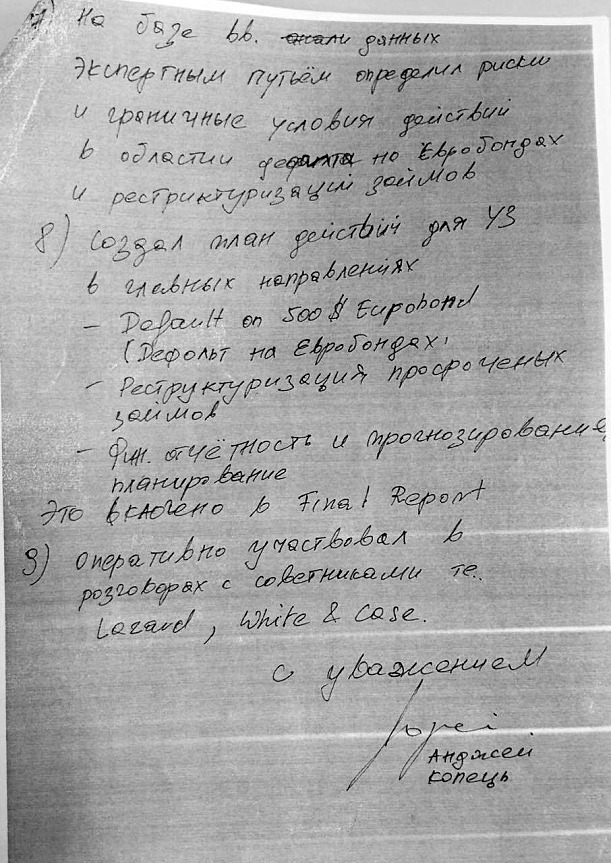 7) На базе вв. данных
Экспертным путьём определил риски
и граничные условия действий
в области дефолта на Евробондах
и рестриктуризаций займов
8) Создал план действий для УЗ
в главных направлениях
- Default on 500 $ Eurobond
(Дефольт на Евробондах)
- Реструктуризация просроченых
займов
- Фин. отчётность и прогнозирование,
планирование
Это включено в Final Report
9) Оперативно участвовал в
розговорах с советниками те..
Lazard, White & Case.
с уважением
Анджей
Копець